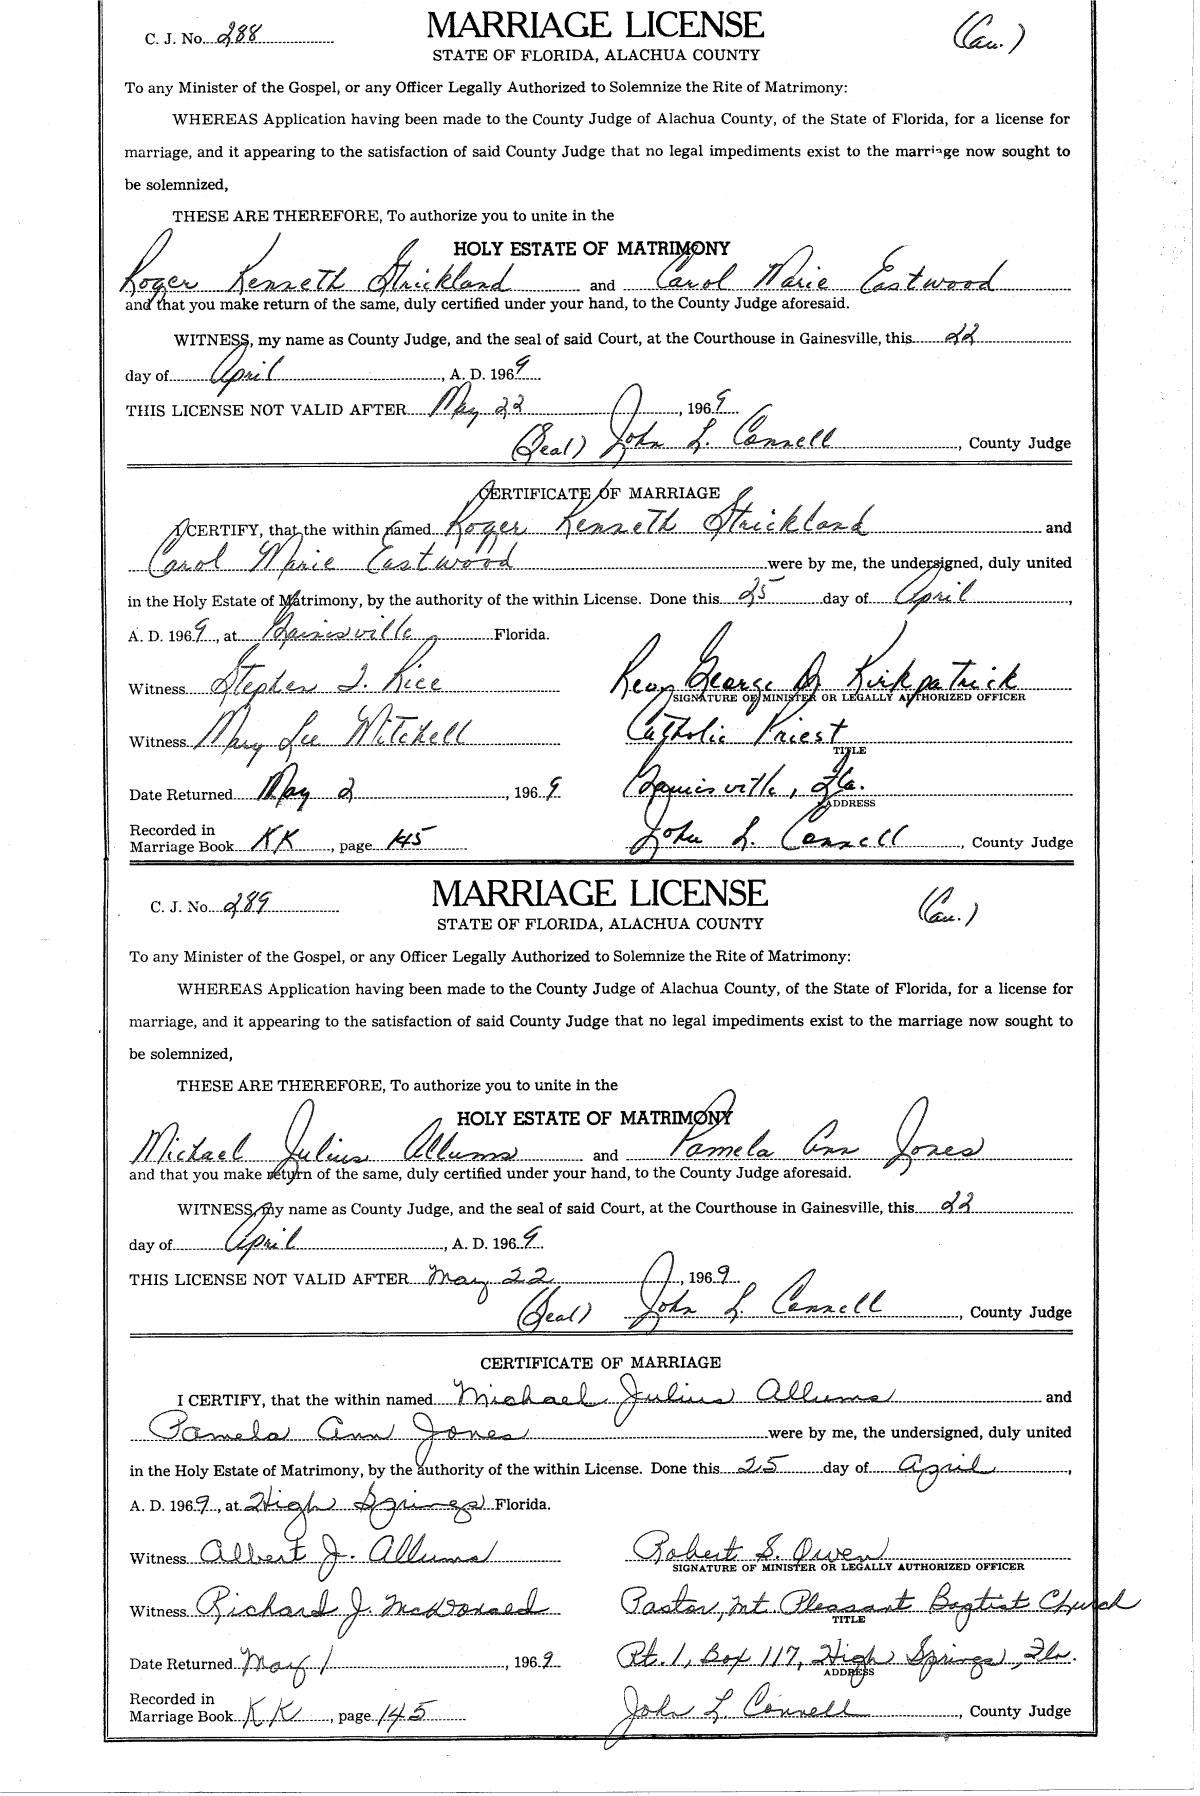 C. J. No. 288 MARRIAGE LICENSE (Cau.)
STATE OF FLORIDA, ALACHUA COUNTY
To any Minister of the Gospel, or any Officer Legally Authorized to Solemnize the Rite of Matrimony:
WHEREAS Application having been made to the County Judge of Alachua County, of the State of Florida, for a license for
marriage, and it appearing to the satisfaction of said County Judge that no legal impediments exist to the marriage now sought to
be solemnized,
THESE ARE THEREFORE, To authorize you to unite in the
HOLY ESTATE OF MATRIMONY
Roger Kenneth Strickland and Carol Marie Eastwood
and that you make return of the same, duly certified under your hand, to the County Judge aforesaid.
WITNESS, my name as County Judge, and the seal of said Court, at the Courthouse in Gainesville, this 22
day of April, A. D. 1969
THIS LICENSE NOT VALID AFTER May 22, 1969
(Seal) John L. Connell, County Judge
CERTIFICATE OF MARRIAGE
I CERTIFY, that the within named Roger Kenneth Strickland and
Carol Marie Eastwood were by me, the undersigned, duly united
in the Holy Estate of Matrimony, by the authority of the within License. Done this 25 day of April,
A. D. 1969, at Gainesville Florida.
Witness Stephen J. Rice Rev. George D. Kirkpatrick
SIGNATURE OF MINISTER OR LEGALLY AUTHORIZED OFFICER
Witness Mary Lee Mitchell Catholic Priest
TITLE
Date Returned May 2, 1969 Gainesville, Fla.
ADDRESS
Recorded in
Marriage Book KK, page 145 John L. Connell, County Judge
C. J. No. 289 MARRIAGE LICENSE (Cau.)
STATE OF FLORIDA, ALACHUA COUNTY
To any Minister of the Gospel, or any Officer Legally Authorized to Solemnize the Rite of Matrimony:
WHEREAS Application having been made to the County Judge of Alachua County, of the State of Florida, for a license for
marriage, and it appearing to the satisfaction of said County Judge that no legal impediments exist to the marriage now sought to
be solemnized,
THESE ARE THEREFORE, To authorize you to unite in the
HOLY ESTATE OF MATRIMONY
Michael Julius Allums and Pamela Ann Jones
and that you make return of the same, duly certified under your hand, to the County Judge aforesaid.
WITNESS, my name as County Judge, and the seal of said Court, at the Courthouse in Gainesville, this 22
day of April, A. D. 1969.
THIS LICENSE NOT VALID AFTER May 22, 1969.
(Seal) John L. Connell, County Judge
CERTIFICATE OF MARRIAGE
I CERTIFY, that the within named Michael Julius Allums and
Pamela Ann Jones were by me, the undersigned, duly united
in the Holy Estate of Matrimony, by the authority of the within License. Done this 25 day of April,
A. D. 1969, at High Springs Florida.
Witness Albert J. Allums Robert S. Owen
SIGNATURE OF MINISTER OR LEGALLY AUTHORIZED OFFICER
Witness Richard J. McDonald Pastor, Mt. Pleasant Baptist Church
TITLE
Date Returned May 1, 1969 Rt. 1, Box 117, High Springs, Fla.
ADDRESS
Recorded in
Marriage Book KK, page 145 John L. Connell, County Judge